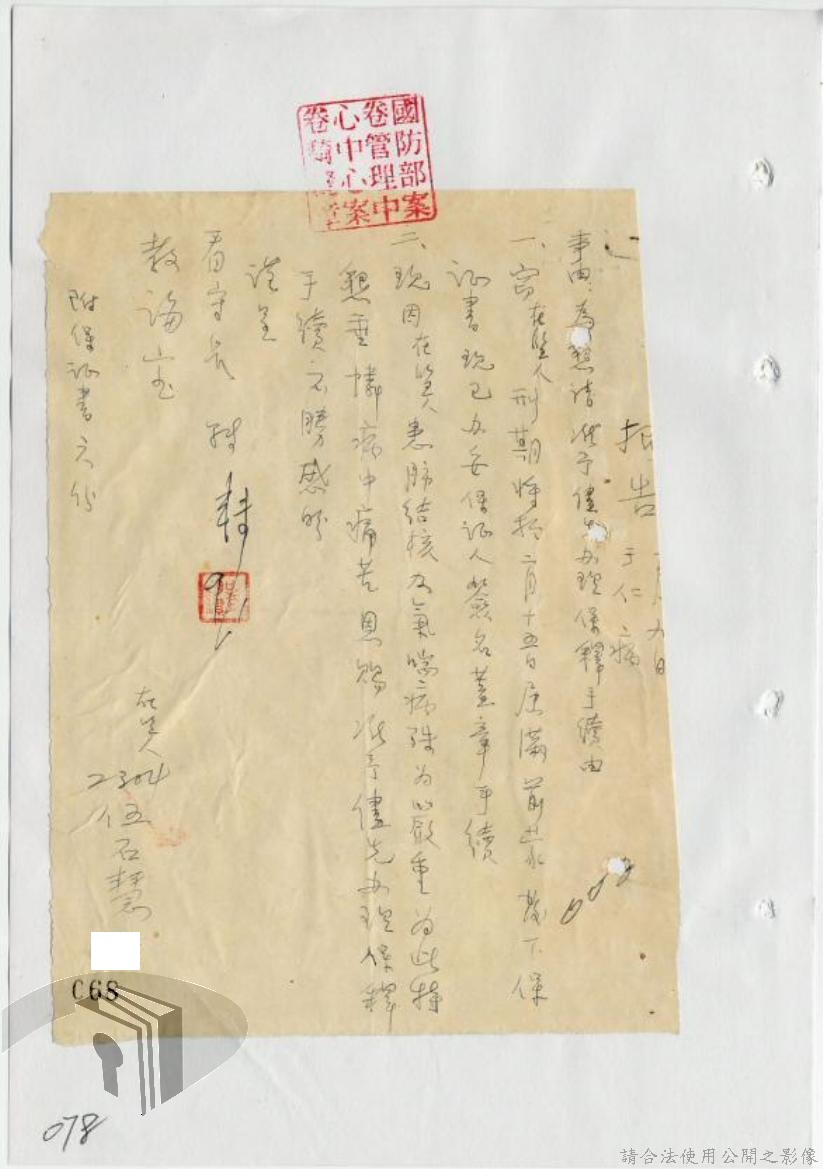 國防部案
卷管理中
心中心案
卷
報告
月九日
于仁病
事由:為懇請准予儘先办理保釋手續由
一、窃在監人刑期將於二月十五日屆滿前蒙發下保
証書現已办妥保証人簽名蓋章手續
二、現因在監人患肺結核及氣喘病殊為嚴重為此特
懇垂憐病中痛苦恩賜准予儘先办理保釋
手續不勝感盼
謹呈
看守長
教誨室
附保証書六份
在監人
2304
伍石慧
C68
078
請合法使用公開之影像